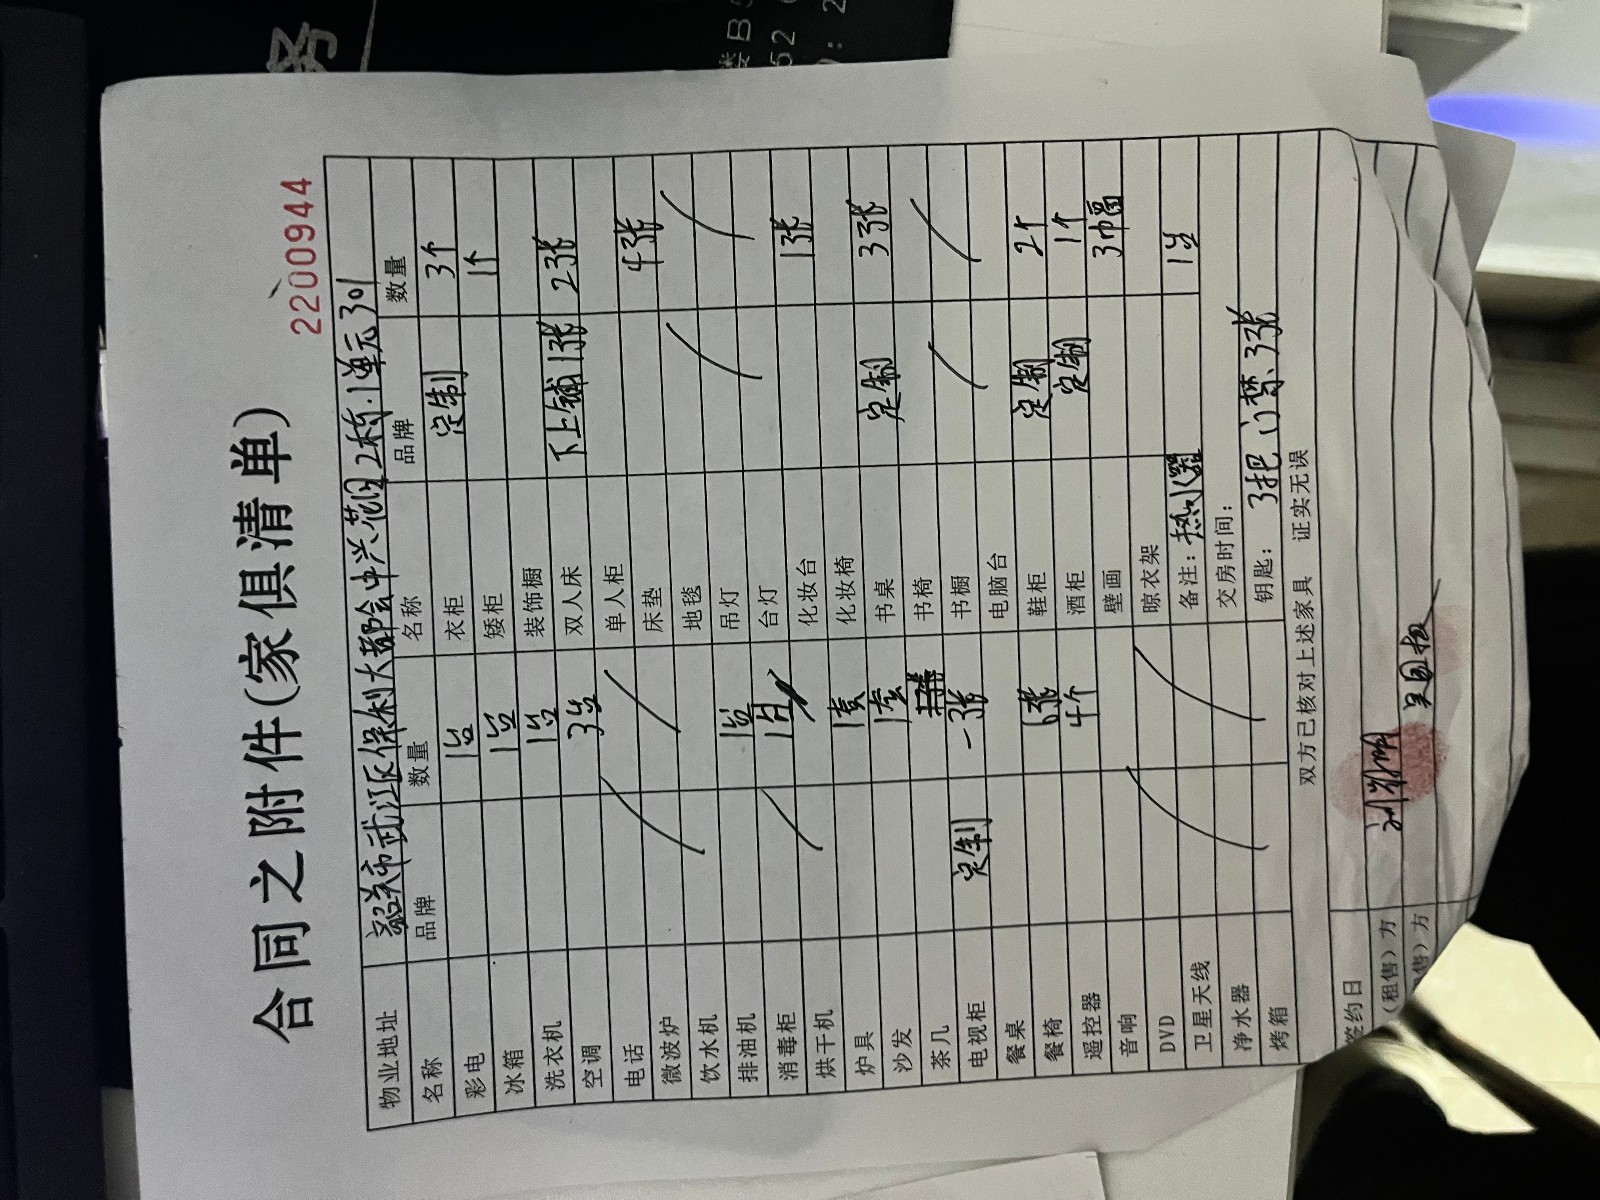 合同之附件(家俱清单)
2200944
物业地址 韶关市武江区保利大都会中兴花园2栋.1单元301
名称 品牌 数量 名称 品牌 数量
彩电 1台 衣柜 定制 3个
冰箱 1台 矮柜 1个
洗衣机 1台 装饰橱
空调 3台 双人床 下上铺1张 2张
电话 单人柜
微波炉 床垫 4张
饮水机 地毯
排油机 1台 吊灯
消毒柜 1台 台灯
烘干机 化妆台 1张
炉具 1套 化妆椅
沙发 1套 书桌 定制 3张
茶几 书椅
电视柜 定制 一张 书橱
餐桌 电脑台
餐椅 6张 鞋柜 定制 2个
遥控器 4个 酒柜 定制 1个
音响 壁画 3幅
DVD 晾衣架
卫星天线 备注:热水器 1台
净水器 交房时间:
烤箱 钥匙: 3把 门禁、3张
双方已核对上述家具 证实无误
签约日
(租售)方
售)方
务
楼B